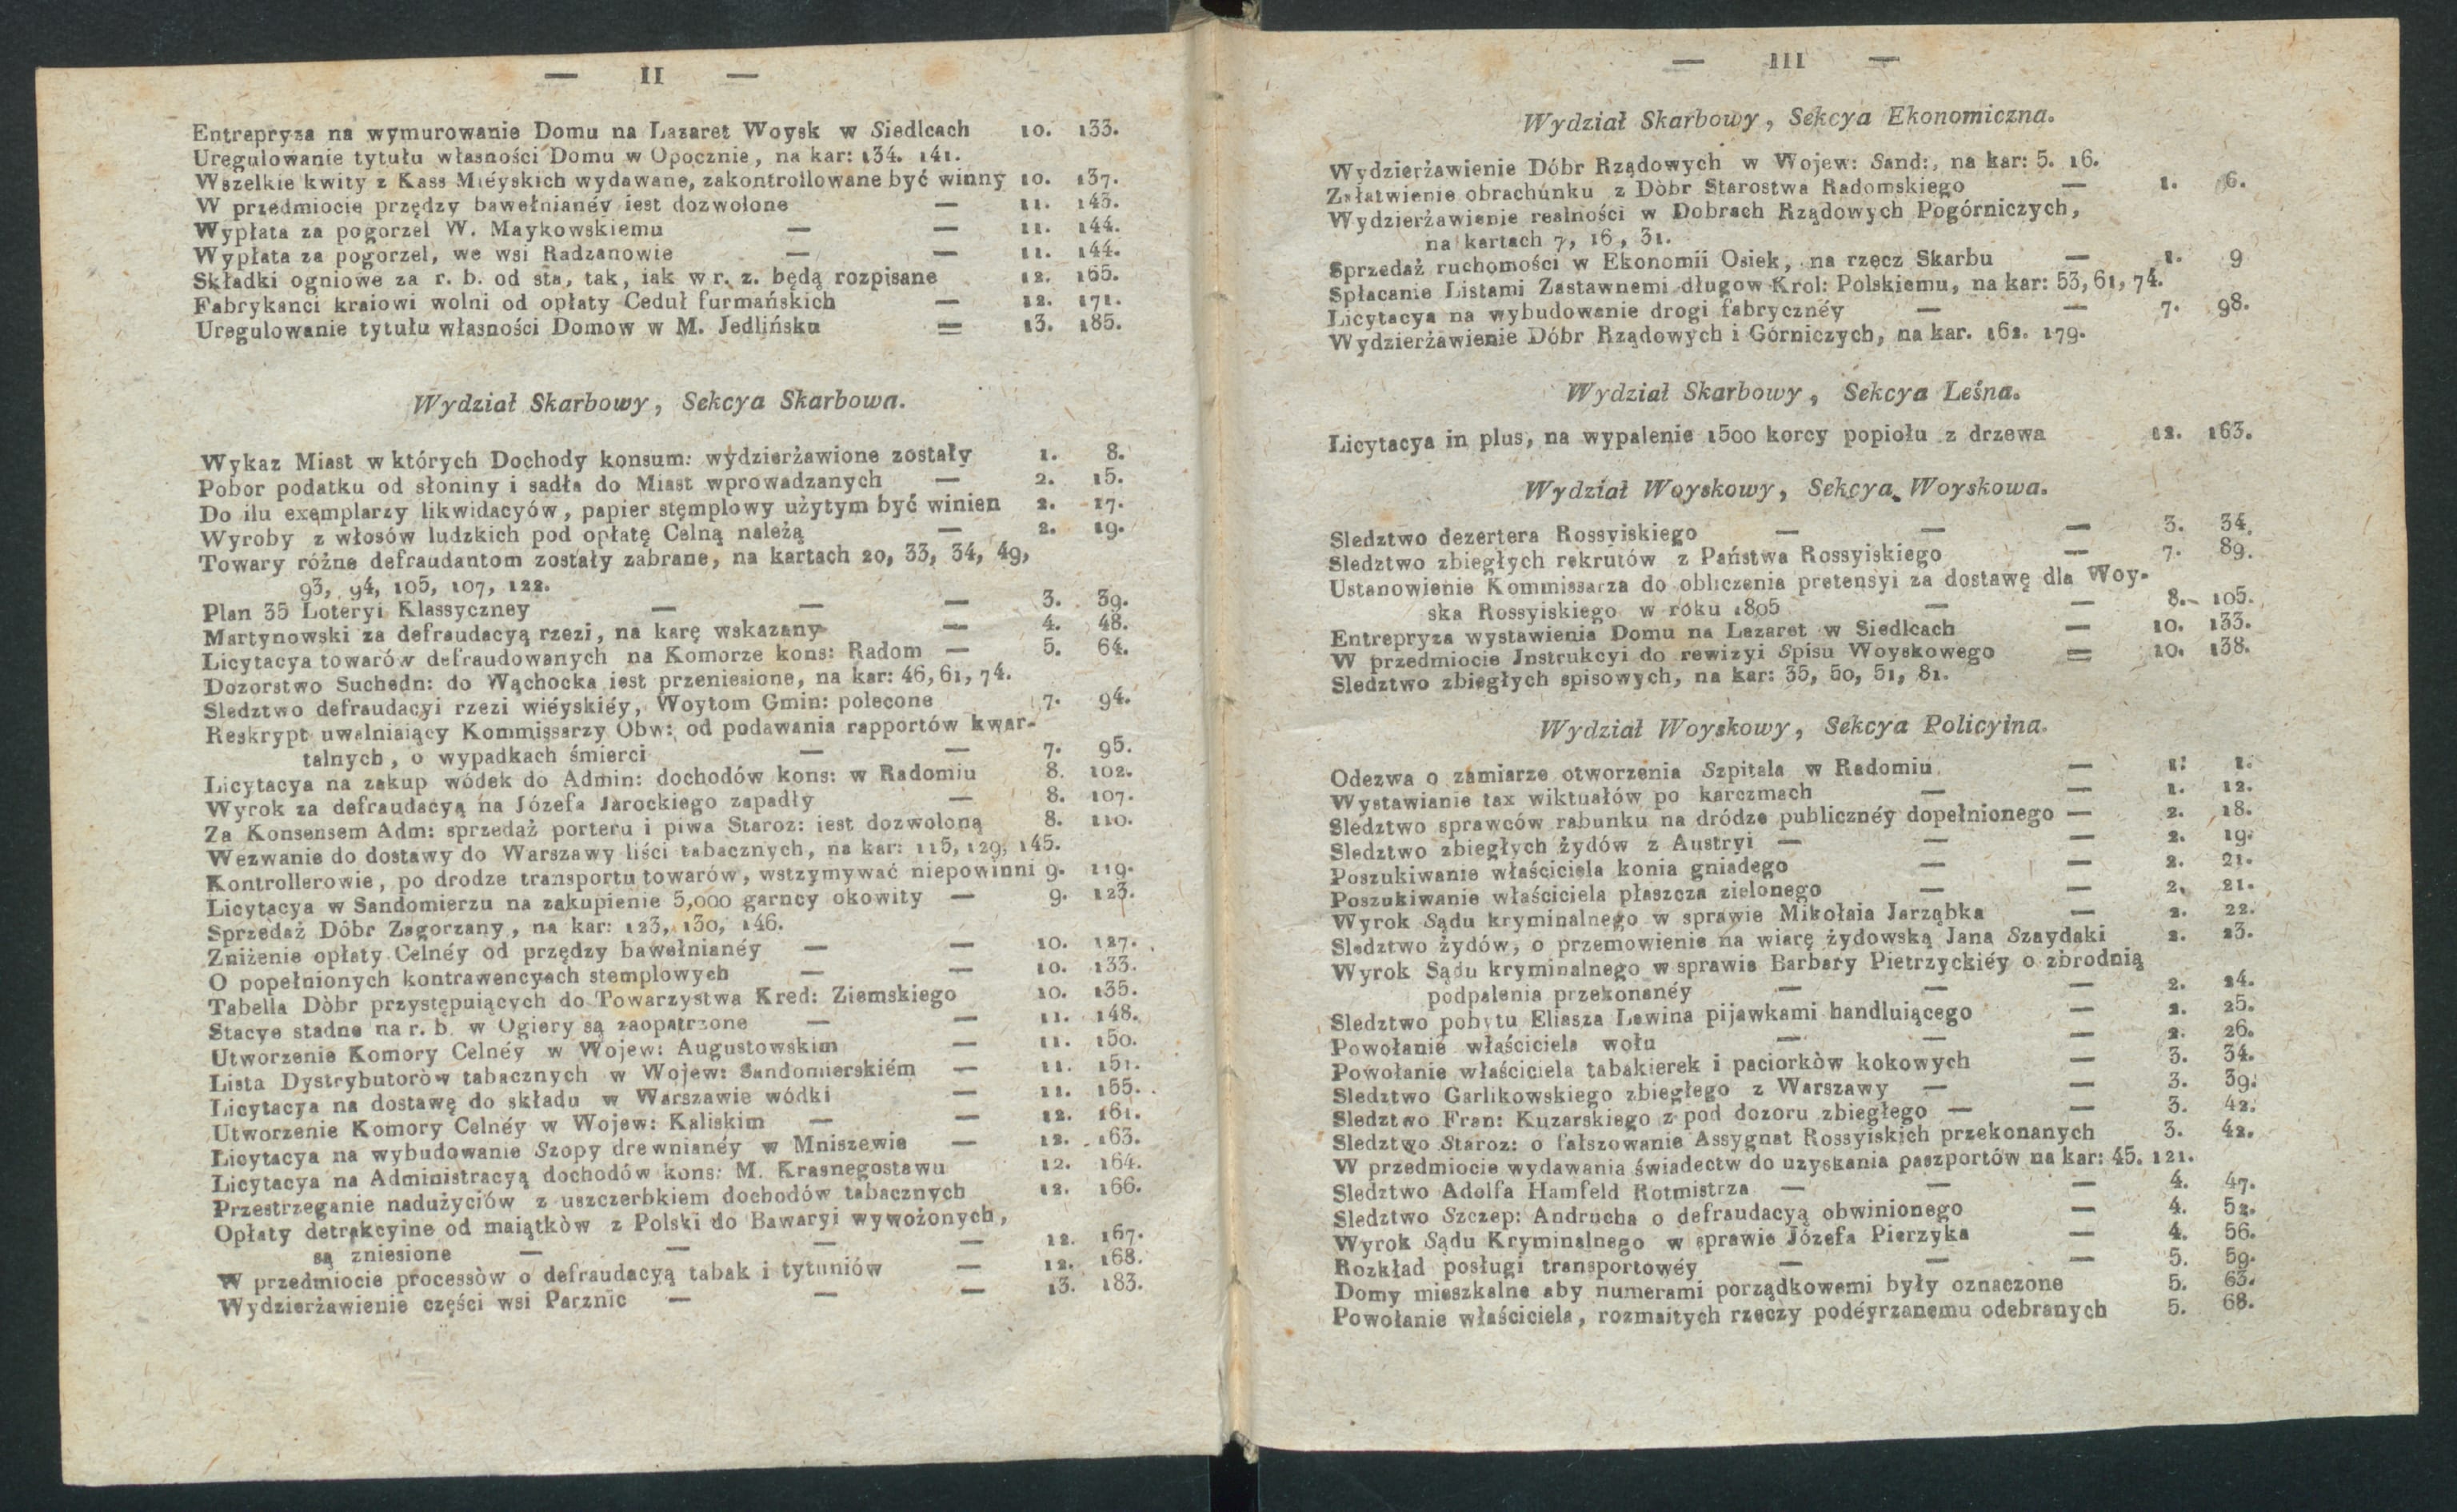 — II —
Entrepryza na wymurowanie Domu na Lazaret Woysk w Siedlcach 10. 133.
Uregulowanie tytułu własności Domu w Opocznie, na kar: 134. 141.
Wszelkie kwity z Kass Miéyskich wydawane, zakontrollowane być winny 10. 137.
W przedmiocie przędzy bawełnianéy iest dozwolone — 11. 143.
Wypłata za pogorzel W. Maykowskiemu — — 11. 144.
Wypłata za pogorzel, we wsi Radzanowie — — 11. 144.
Składki ogniowe za r. b. od sta, tak, iak w r. z. będą rozpisane 12. 165.
Fabrykanci kraiowi wolni od opłaty Ceduł furmańskich — 12. 171.
Uregulowanie tytułu własności Domow w M. Jedlińsku = 13. 185.
Wydział Skarbowy, Sekcya Skarbowa.
Wykaz Miast w których Dochody konsum: wydzierżawione zostały 1. 8.
Pobor podatku od słoniny i sadła do Miast wprowadzanych — 2. 15.
Do ilu exemplarzy likwidacyów, papier stęmplowy użytym być winien 2. 17.
Wyroby z włosów ludzkich pod opłatę Celną należą — 2. 19.
Towary różne defraudantom zostały zabrane, na kartach 20, 33, 34, 49,
93, 94, 105, 107, 122.
Plan 35 Loteryi Klassyczney — — — 3. 39.
Martynowski za defraudacyą rzezi, na karę wskazany — 4. 48.
Licytacya towarów defraudowanych na Komorze kons: Radom — 5. 64.
Dozorstwo Suchedn: do Wąchocka iest przeniesione, na kar: 46, 61, 74.
Sledztwo defraudacyi rzezi wiéyskiéy, Woytom Gmin: polecone 7. 94.
Reskrypt uwalniaiący Kommissarzy Obw: od podawania rapportów kwar-
talnych, o wypadkach śmierci — — 7. 95.
Licytacya na zakup wódek do Admin: dochodów kons: w Radomiu 8. 102.
Wyrok za defraudacyą na Józefa Jarockiego zapadły — 8. 107.
Za Konsensem Adm: sprzedaż porteru i piwa Staroz: iest dozwoloną 8. 110.
Wezwanie do dostawy do Warszawy liści tabacznych, na kar: 115, 129, 145.
Kontrollerowie, po drodze transportu towarów, wstzymywać niepowinni 9. 119.
Licytacya w Sandomierzu na zakupienie 5,000 garncy okowity — 9. 123.
Sprzedaż Dóbr Zagorzany, na kar: 123, 130, 146.
Zniżenie opłaty Celnéy od przędzy bawełnianéy — — 10. 127.
O popełnionych kontrawencyach stemplowych — — 10. 133.
Tabella Dòbr przystępuiących do Towarzystwa Kred: Ziemskiego 10. 135.
Stacye stadne na r. b. w Ogiery są zaopatrzone — — 11. 148.
Utworzenie Komory Celnéy w Wojew: Augustowskim — 11. 150.
Lista Dystrybutoròw tabacznych w Wojew: Sandomierskiém — 11. 151.
Licytacya na dostawę do składu w Warszawie wódki — 11. 155.
Utworzenie Komory Celnéy w Wojew: Kaliskim — — 12. 161.
Licytacya na wybudowanie Szopy drewnianéy w Mniszewie — 12. 163.
Licytacya na Administracyą dochodów kons: M. Krasnegostawu 12. 164.
Przestrzeganie nadużyciów z uszczerbkiem dochodów tabacznych 12. 166.
Opłaty detrakcyine od maiątkòw z Polski do Bawaryi wywożonych,
są zniesione — — — — 12. 167.
W przedmiocie processòw o defraudacyą tabak i tytuniów — 12. 168.
Wydzierżawienie części wsi Parznic — — — 13. 183.
— III —
Wydział Skarbowy, Sekcya Ekonomiczna.
Wydzierżawienie Dóbr Rządowych w Wojew: Sand:, na kar: 5. 16.
Załatwienie obrachúnku z Dòbr Starostwa Radomskiego — 1. 6.
Wydzierżawienie realności w Dobrach Rządowych Pogórniczych,
na kartach 7, 16, 31.
Sprzedaż ruchomości w Ekonomii Osiek, na rzecz Skarbu — 1. 9
Spłacanie Listami Zastawnemi długow Krol: Polskiemu, na kar: 53, 61, 74.
Licytacya na wybudowanie drogi fabrycznéy — — 7. 98.
Wydzierżawienie Dóbr Rządowych i Górniczych, na kar. 162. 179.
Wydział Skarbowy, Sekcya Leśna.
Licytacya in plus, na wypalenie 1500 korcy popiołu z drzewa 12. 163.
Wydział Woyskowy, Sekcya Woyskowa.
Sledztwo dezertera Rossyiskiego — — — 3. 34.
Sledztwo zbiegłych rekrutów z Państwa Rossyiskiego — 7. 89.
Ustanowienie Kommissarza do obliczenia pretensyi za dostawę dla Woy-
ska Rossyiskiego w roku 1805 — — 8. 105.
Entrepryza wystawienia Domu na Lazaret w Siedlcach — 10. 133.
W przedmiocie Jnstrukcyi do rewizyi Spisu Woyskowego = 10. 138.
Sledztwo zbiegłych spisowych, na kar: 35, 50, 51, 81.
Wydział Woyskowy, Sekcya Policyina.
Odezwa o zamiarze otworzenia Szpitala w Radomiu — 1: 1.
Wystawianie tax wiktuałów po karczmach — — 1. 12.
Sledztwo sprawców rabunku na dródze publicznéy dopełnionego — 2. 18.
Sledztwo zbiegłych żydów z Austryi — — — 2. 19.
Poszukiwanie właściciela konia gniadego — — 2. 21.
Poszukiwanie właściciela płaszcza zielonego — — 2. 21.
Wyrok Sądu kryminalnego w sprawie Mikołaia Jarząbka — 2. 22.
Sledztwo żydów, o przemowienie na wiarę żydowską Jana Szaydaki 2. 23.
Wyrok Sądu kryminalnego w sprawie Barbary Pietrzyckiéy o zbrodnią
podpalenia przekonanéy — — — 2. 24.
Sledztwo pobytu Eliasza Lewina pijawkami handluiącego — 2. 25.
Powołanie właściciela wołu — — — 2. 26.
Powołanie właściciela tabakierek i paciorkòw kokowych — 3. 34.
Sledztwo Garlikowskiego zbiegłego z Warszawy — — 3. 39.
Sledztwo Fran: Kuzarskiego z pod dozoru zbiegłego — — 3. 42.
Sledztwo Staroz: o fałszowanie Assygnat Rossyiskich przekonanych 3. 42.
W przedmiocie wydawania świadectw do uzyskania paszportów na kar: 45. 121.
Sledztwo Adolfa Hamfeld Rotmistrza — — — 4. 47.
Sledztwo Szczep: Andrucha o defraudacyą obwinionego — 4. 52.
Wyrok Sądu Kryminalnego w sprawie Józefa Pierzyka — 4. 56.
Rozkład posługi transportowéy — — — 5. 59.
Domy mieszkalne aby numerami porządkowemi były oznaczone 5. 63.
Powołanie właściciela, rozmaitych rzeczy podéyrzanemu odebranych 5. 68.